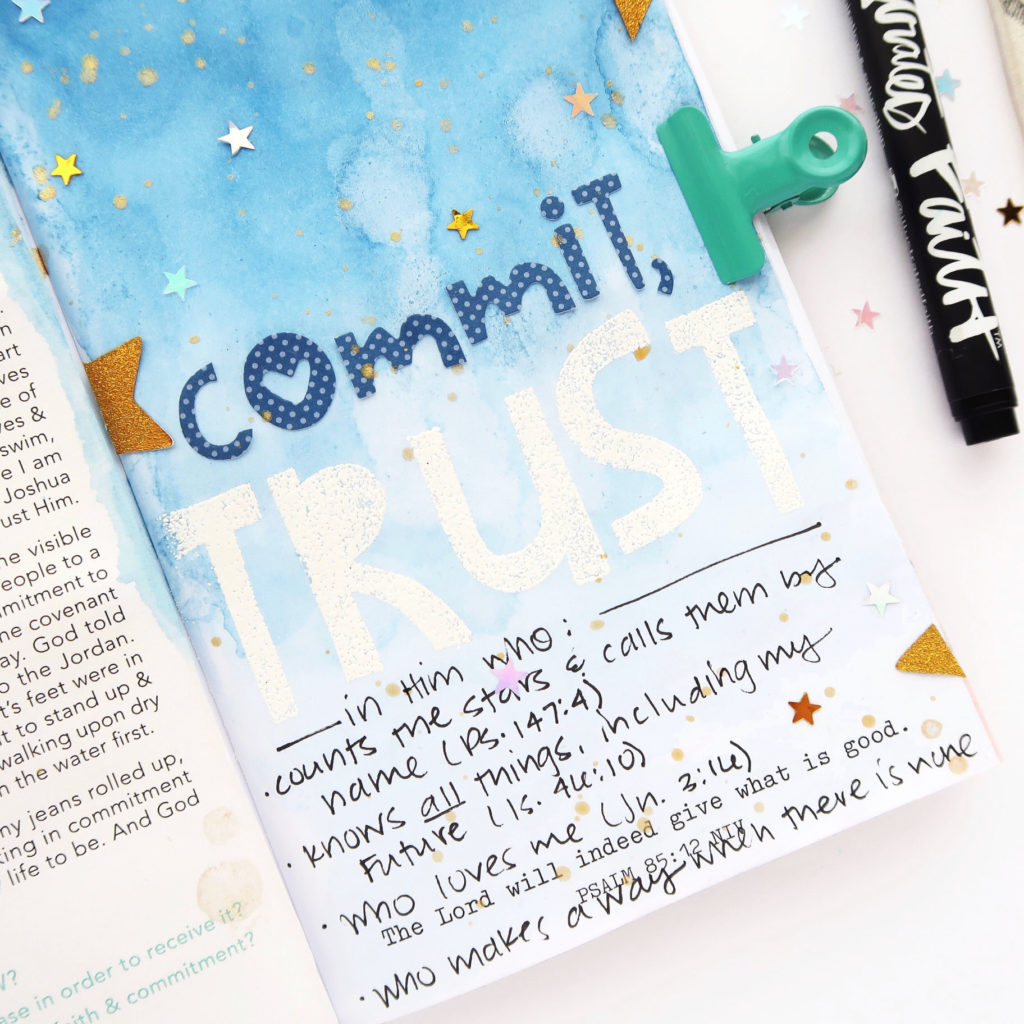 commit,
TRUST
in Him who:
· counts the stars & calls them by
name (Ps. 147:4)
· knows all things, including my
future (Is. 46:10)
· who loves me (Jn. 3:16)
The Lord will indeed give what is good.
PSALM 85:12 NIV
· who makes a way when there is none
Faith
TM
art
ves
e of
yes &
swim,
e I am
Joshua
ust Him.
he visible
people to a
mitment to
ne covenant
ay. God told
o the Jordan.
t's feet were in
t to stand up &
walking upon dry
n the water first.
ny jeans rolled up,
king in commitment
life to be. And God
W?
ase in order to receive it?
faith & commitment?